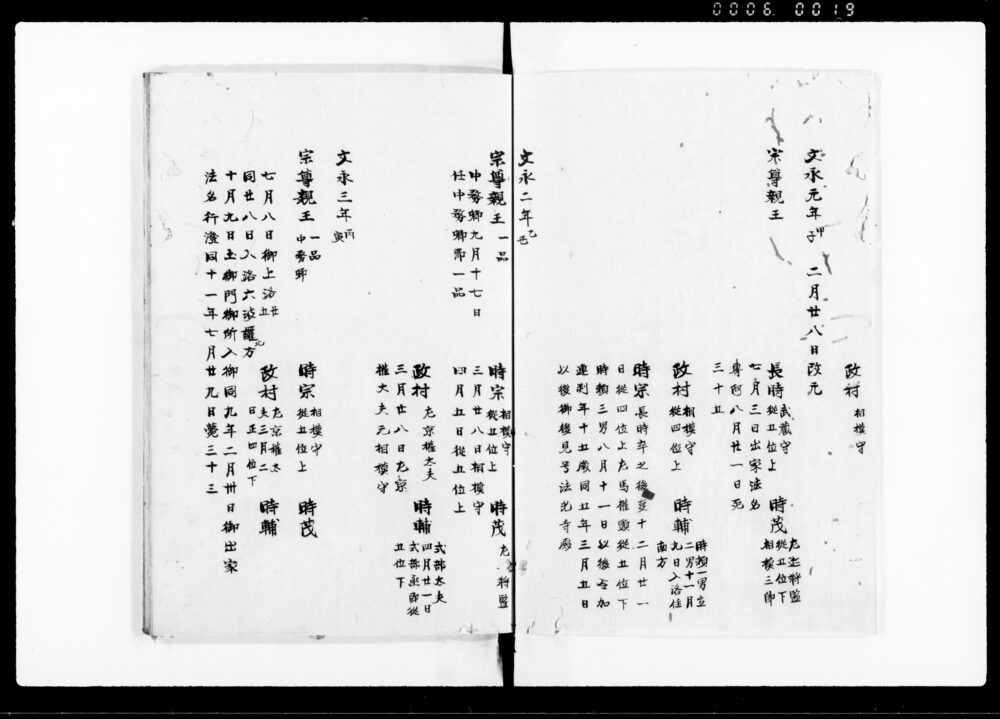 0006 0019
政村 相模守
文永元年甲子 二月廿八日改元
宗尊親王
長時 武蔵守 従五位上
時茂 左近将監 従五位下 相模三郎
七月三日出家法名
専阿八月廿一日死
三十五
政村 相模守 従四位上
時輔 時頼一男 二男十一月 九日入洛住 南方
時宗 長時卒之後至十二月廿一
日従四位上左馬権頭従五位下
時頼三男八月十一日以後令加
連判年十五歳同五年三月五日
以後御後見号法光寺殿
文永二年乙丑
宗尊親王 一品
中務卿九月十七日
任中務卿帯一品
時宗 相模守 従五位上
時茂 左将監
三月廿八日相模守
四月五日従五位上
政村 左京権大夫
時輔 式部大夫 四月廿一日 式部丞即従 五位下
三月廿八日左京
権大夫元相模守
文永三年丙寅
宗尊親王 一品 中務卿
時宗 相模守 従五位上
時茂
七月八日御上洛廿五
同廿八日入洛六波羅北方
十月九日土御門御所入御同九年二月卅日御出家
法名行澄同十一年七月廿九日薨三十三
政村 左京権大夫三月二日正四位下
時輔